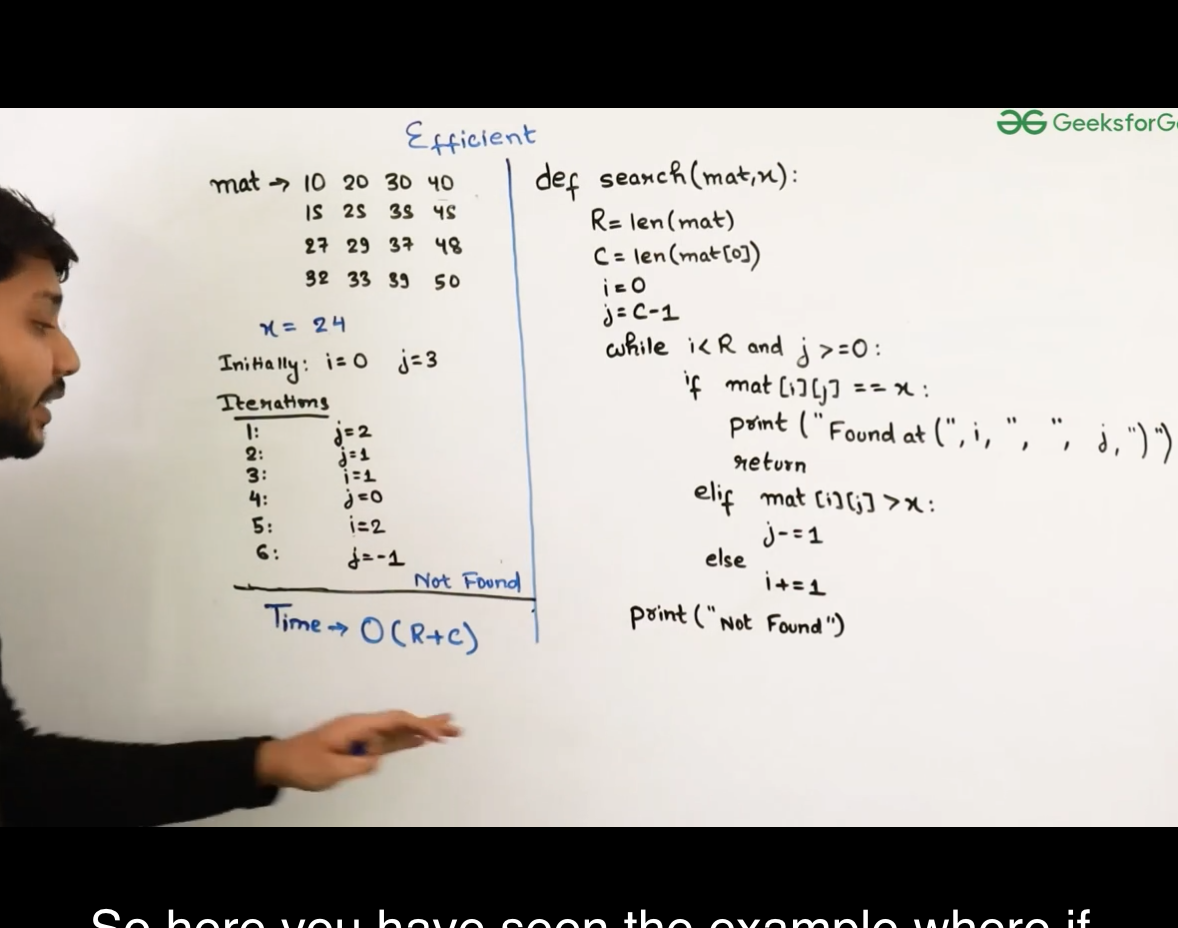 GeeksforGe
Efficient
mat → 10 20 30 40
15 25 35 45
27 29 37 48
32 33 39 50
x = 24
Initially: i=0 j=3
Iterations
1: j=2
2: j=1
3: i=1
4: j=0
5: i=2
6: j=-1
Not Found
Time → O(R+C)
def search(mat,x):
R= len(mat)
C= len(mat[0])
i=0
j=C-1
while i<R and j>=0:
if mat[i][j] == x:
print ("Found at (", i, ", ", j, ")")
return
elif mat[i][j] >x:
j-=1
else
i+=1
print("Not Found")
So here you have seen the example where if